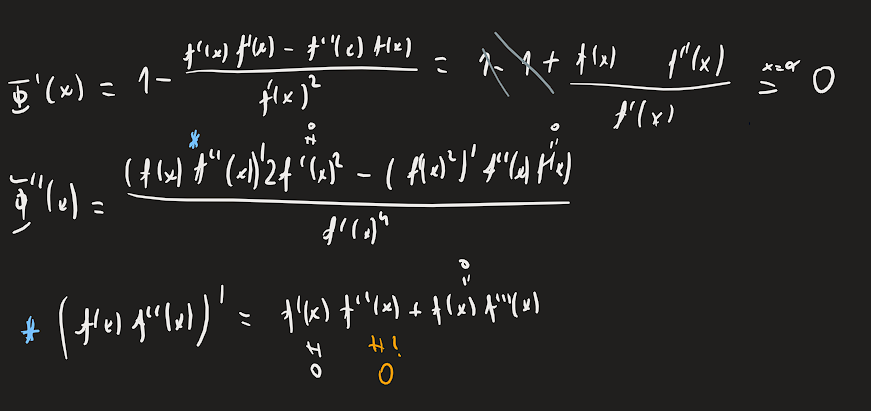 Φ'(x) = 1 - (f'(x) f'(x) - f''(x) f(x)) / f'(x)² = 1 - 1 + (f(x) f''(x)) / f'(x) =^{x=α} 0
Φ''(x) = ((f(x) f''(x))' 2f'(x)² - (f'(x)²)' f''(x) f(x)) / f'(x)⁴
* (f(x) f''(x))' = f'(x) f''(x) + f(x) f'''(x)
≠ 0 ≠! 0